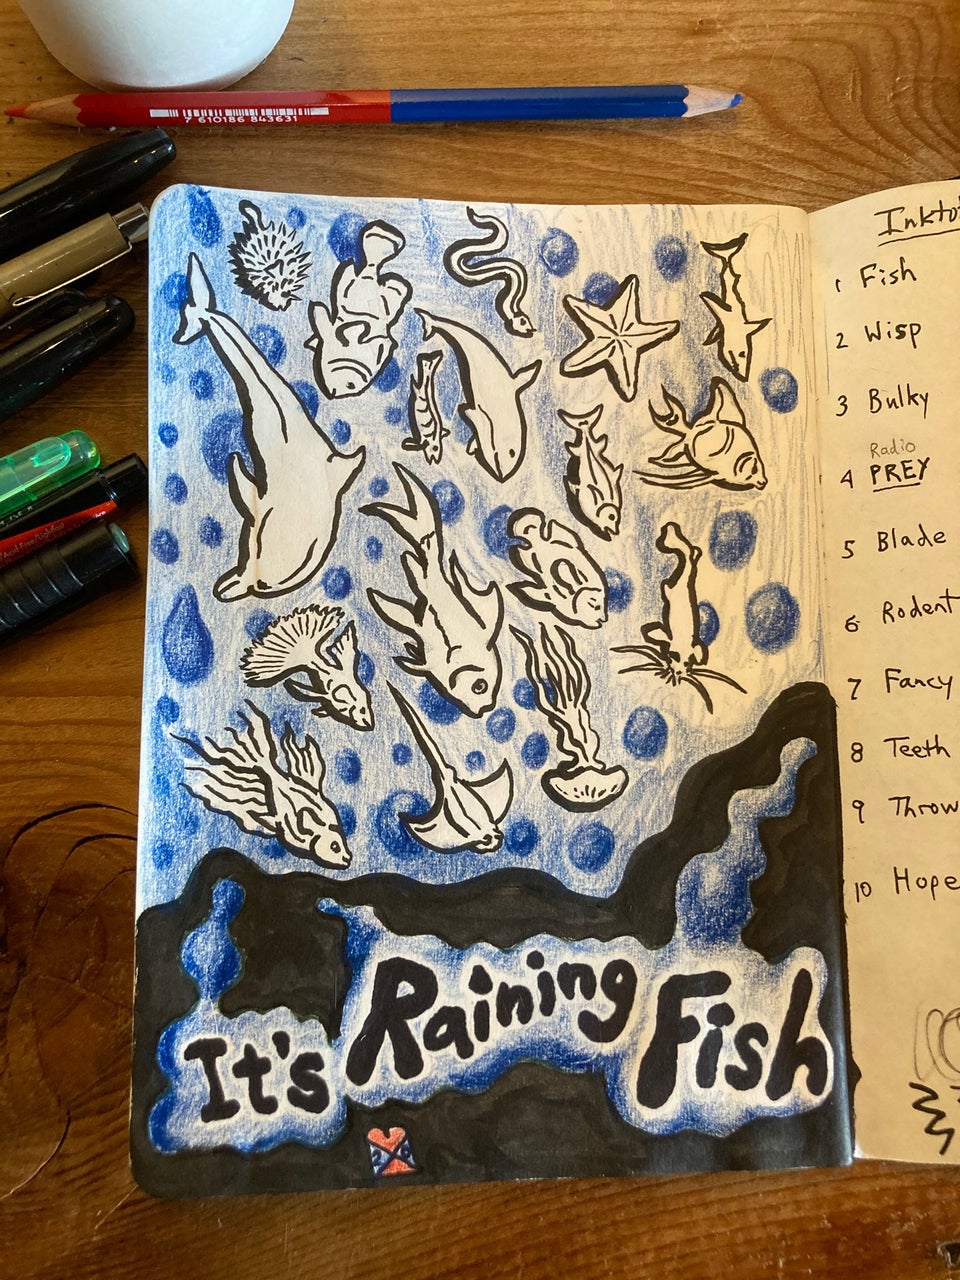 7 610186 843631
Inkto
1 Fish
2 Wisp
3 Bulky
Radio
4 PREY
5 Blade
6 Rodent
7 Fancy
8 Teeth
9 Throw
10 Hope
It's Raining Fish